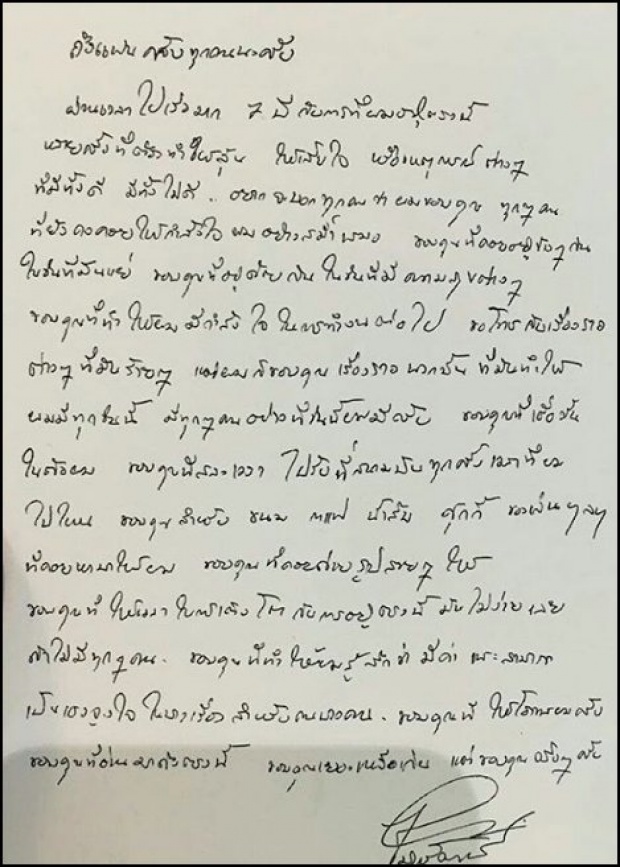 ถึงแฟนคลับทุกคนนะครับ
ผ่านเวลาไปเร็วมาก 7 ปี กับการที่ผมอยู่ตรงนี้
หลายครั้งที่ทำให้ลุ้น ให้เสียใจ หรือเหตุการณ์ต่างๆ
ที่มีทั้งดี มีทั้งไม่ดี.. อยากจะบอกทุกคนว่าผมขอบคุณ ทุกๆคน
ที่ยังคงคอยให้กำลังใจผมอย่างสม่ำเสมอ ขอบคุณที่คอยอยู่ข้างๆกัน
ในวันที่มันแย่ ขอบคุณที่อยู่ด้วยกัน ในวันที่มีความสุขต่างๆ
ขอบคุณที่ทำให้ผมมีกำลังใจในการทำงานต่อไป ขอโทษกับเรื่องราว
ต่างๆที่มันร้ายๆ แต่ผมก็ขอบคุณเรื่องราวพวกนั้น ที่มันทำให้
ผมมีทุกวันนี้ มีทุกๆคนอย่างที่วันนี้ผมมีครับ ขอบคุณที่เชื่อมั่น
ในตัวผม ขอบคุณที่สละเวลา ไปรับที่สนามบินทุกครั้งเวลาที่ผม
ไปไหน ขอบคุณสำหรับ ขนม กาแฟ น้ำส้ม คุกกี้ ของอื่นๆ
ที่คอยหามาให้ผม ขอบคุณที่คอยถ่ายรูปสวยๆ ให้
ขอบคุณที่ให้เวลาในการเติบโต กับการอยู่ตรงนี้ มันไม่ง่ายเลย
ถ้าไม่มีทุกๆคน. ขอบคุณที่ทำให้ผมรู้สึกว่ามีค่า และสามารถ
เป็นแรงจูงใจในบางเรื่องสำหรับคนบางคน. ขอบคุณที่ให้โอกาสผมครับ
ขอบคุณที่อ่านมาถึงตรงนี้ ขอบคุณเยอะเหลือเกิน แต่ขอบคุณจริงๆครับ